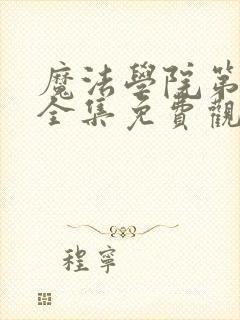 魔法學院第
全集免費觀
程寧